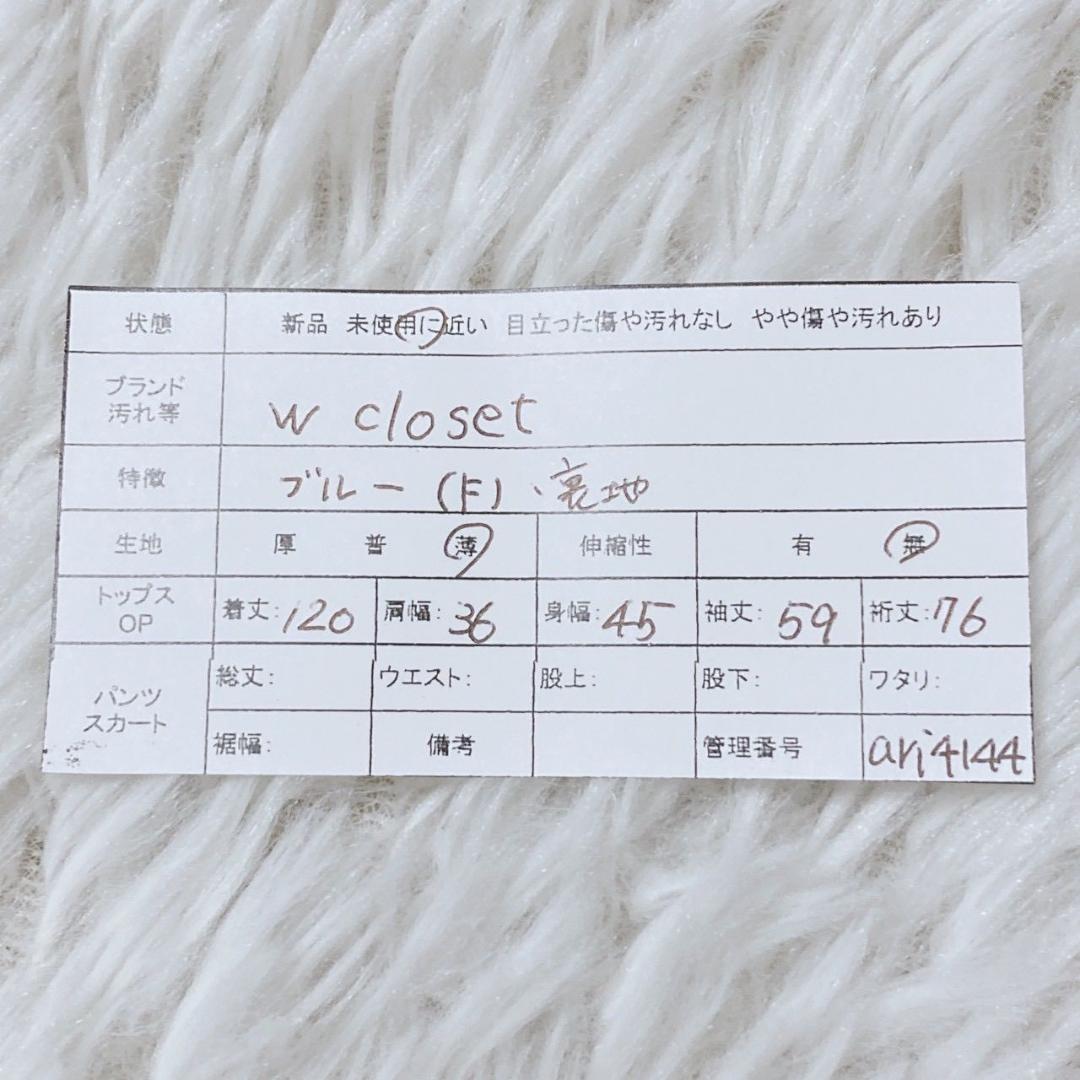 状態 新品 未使用に近い 目立った傷や汚れなし やや傷や汚れあり
ブランド
汚れ等
w closet
特徴 ブルー (F)、裏地
生地 厚 普 薄 伸縮性 有 無
トップス
OP
着丈:120 肩幅:36 身幅:45 袖丈:59 裄丈:76
パンツ
スカート
総丈: ウエスト: 股上: 股下: ワタリ:
裾幅: 備考 管理番号 ari4144